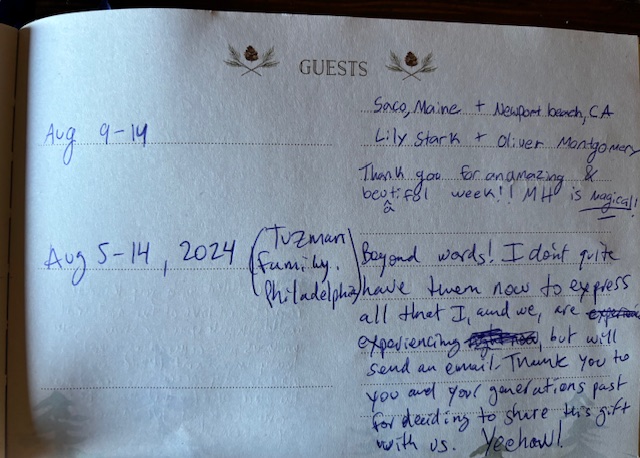 GUESTS
Aug 9-14
Saco, Maine + Newport beach, CA
Lily Stark + Oliver Montgomery
Thank you for an amazing &
beutiful week!! MH is magical!
a
Aug 5-14, 2024 (Tuzman
Family.
Philadelphia)
Beyond words! I don't quite
have them now to express
all that I, and we, are
experiencing right now, but will
send an email. Thank you to
you and your generations past
for deciding to share this gift
with us. Yeehaw!